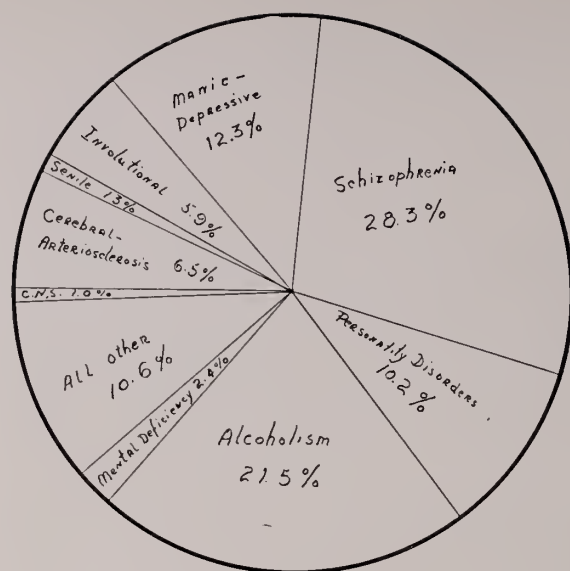 Manic-
Depressive
12.3%
Schizophrenia
28.3%
Personatily Disorders
10.2%
Alcoholism
21.5%
Mental Deficiency 2.4%
All other
10.6%
C.N.S. 1.0%
Cerebral-
Arteriosclerosis 6.5%
Senile 1.3%
Involutional 5.9%